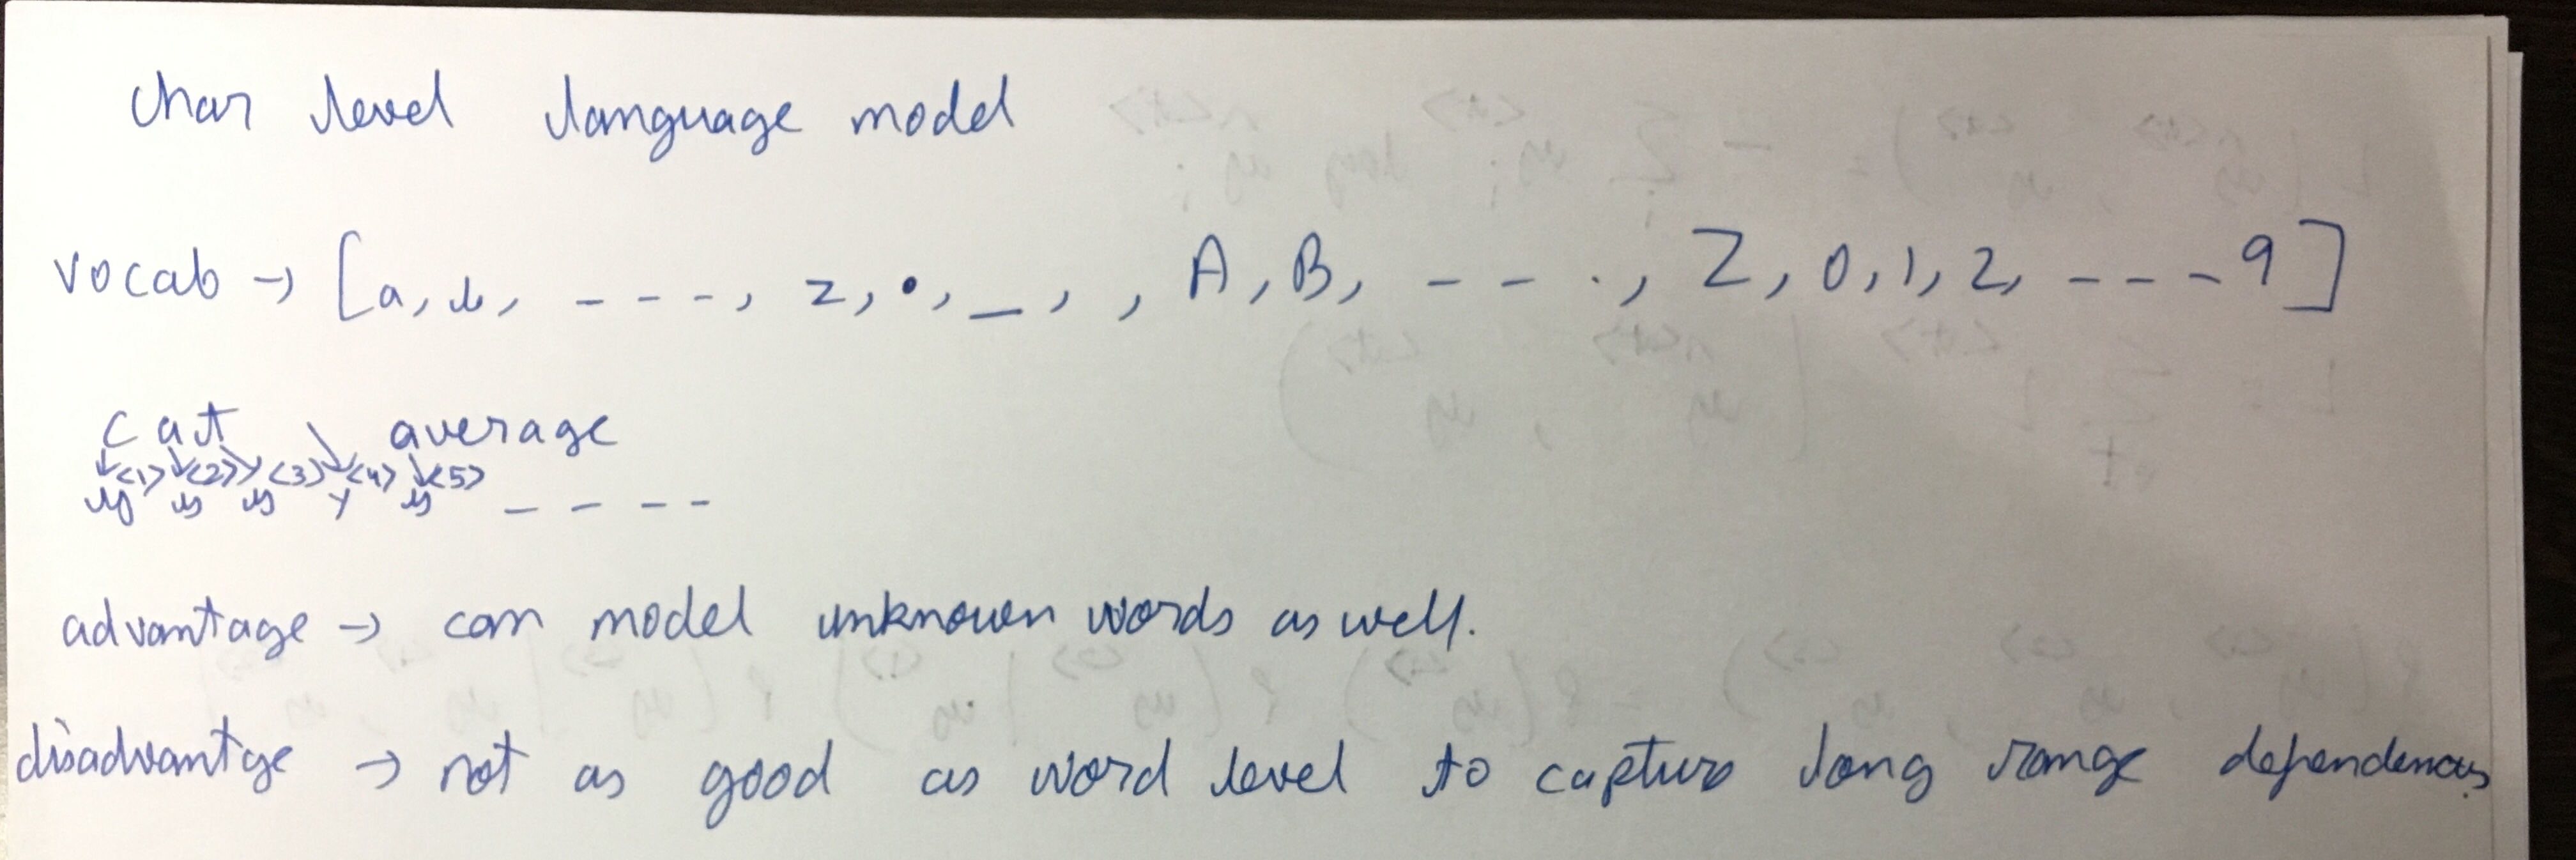 char level language model
vocab → [a, b, - - - -, z, •, _, , , A, B, - - ., Z, 0, 1, 2, - - - 9]
cat average
y<1> y<2> y<3> y<4> y<5> - - - -
advantage → can model unknown words as well.
disadvantge → not as good as word level to capture long range dependences